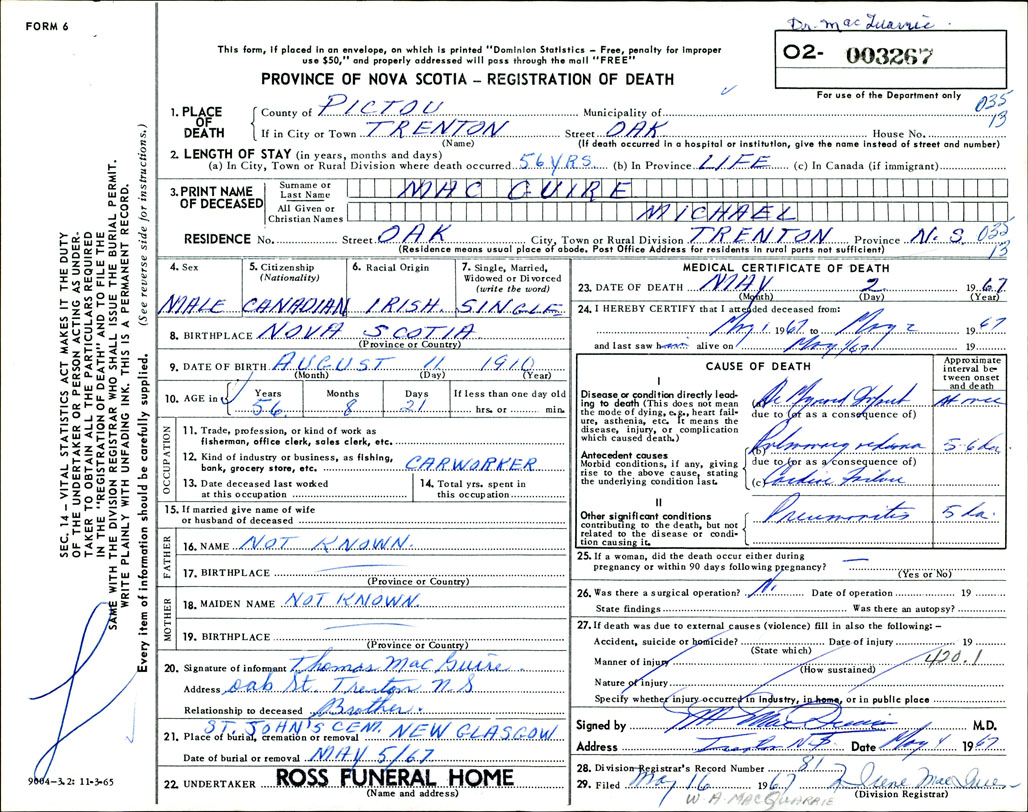 FORM 6
Dr. MacQuarrie.
This form, if placed in an envelope, on which is printed "Dominion Statistics – Free, penalty for improper
use $50," and properly addressed will pass through the mail "FREE"
O2- 003267
PROVINCE OF NOVA SCOTIA – REGISTRATION OF DEATH
For use of the Department only
1. PLACE OF DEATH County of PICTOU Municipality of 035
If in City or Town TRENTON Street OAK House No. 13
(Name) (If death occurred in a hospital or institution, give the name instead of street and number)
2. LENGTH OF STAY (in years, months and days)
(a) In City, Town or Rural Division where death occurred 56 YRS (b) In Province LIFE (c) In Canada (if immigrant)
3. PRINT NAME OF DECEASED Surname or Last Name MAC GUIRE
All Given or Christian Names MICHAEL
RESIDENCE No. Street OAK City, Town or Rural Division TRENTON Province N.S. 035
(Residence means usual place of abode. Post Office Address for residents in rural parts not sufficient) 13
4. Sex MALE
5. Citizenship (Nationality) CANADIAN
6. Racial Origin IRISH.
7. Single, Married, Widowed or Divorced (write the word) SINGLE
8. BIRTHPLACE NOVA SCOTIA
(Province or Country)
9. DATE OF BIRTH AUGUST 11 1910
(Month) (Day) (Year)
10. AGE in Years 56 Months 8 Days 21 If less than one day old hrs. or min.
OCCUPATION
11. Trade, profession, or kind of work as
fisherman, office clerk, sales clerk, etc.
12. Kind of industry or business, as fishing,
bank, grocery store, etc. CARWORKER
13. Date deceased last worked
at this occupation
14. Total yrs. spent in
this occupation
15. If married give name of wife
or husband of deceased
FATHER
16. NAME NOT KNOWN.
17. BIRTHPLACE
(Province or Country)
MOTHER
18. MAIDEN NAME NOT KNOWN.
19. BIRTHPLACE
(Province or Country)
20. Signature of informant Thomas MacGuire.
Address Oak St. Trenton N.S
Relationship to deceased Brother.
21. Place of burial, cremation or removal ST. JOHN'S CEM. NEW GLASGOW
Date of burial or removal MAY 5/67
22. UNDERTAKER ROSS FUNERAL HOME
(Name and address)
MEDICAL CERTIFICATE OF DEATH
23. DATE OF DEATH MAY 2 1967
(Month) (Day) (Year)
24. I HEREBY CERTIFY that I attended deceased from:
May 1 1967 to May 2 1967
and last saw h alive on May 1/67 19
CAUSE OF DEATH
Approximate interval between onset and death
I
Disease or condition directly leading to death (This does not mean the mode of dying, e.g., heart failure, asthenia, etc. It means the disease, injury, or complication which caused death.)
(a) At once
due to (or as a consequence of)
(b) Pulmonary 5-6 da.
Antecedent causes
Morbid conditions, if any, giving rise to the above cause, stating the underlying condition last.
due to (or as a consequence of)
(c) Cardiac
II
Other significant conditions
contributing to the death, but not related to the disease or condition causing it.
Pneumonitis 5 da.
25. If a woman, did the death occur either during
pregnancy or within 90 days following pregnancy? —
(Yes or No)
26. Was there a surgical operation? No Date of operation 19
State findings Was there an autopsy?
27. If death was due to external causes (violence) fill in also the following: –
Accident, suicide or homicide? Date of injury 19
(State which) 420.1
Manner of injury
(How sustained)
Nature of injury
Specify whether injury occurred in Industry, in home, or in public place
Signed by M.D.
Address Trenton N.S. Date May 4 1967
28. Division Registrar's Record Number 81
29. Filed May 16 1967 Irene
W A MACQUARRIE (Division Registrar)
SEC. 14 – VITAL STATISTICS ACT MAKES IT THE DUTY
OF THE UNDERTAKER OR PERSON ACTING AS UNDER-
TAKER TO OBTAIN ALL THE PARTICULARS REQUIRED
IN THE "REGISTRATION OF DEATH" AND TO FILE THE
SAME WITH THE DIVISION REGISTRAR WHO SHALL ISSUE THE BURIAL PERMIT.
WRITE PLAINLY WITH UNFADING INK. THIS IS A PERMANENT RECORD.
Every item of information should be carefully supplied. (See reverse side for instructions.)
9004-3.2: 11-3-65